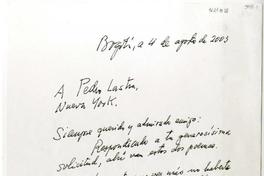 Bogotá, a 4 de agosto de 2003
A Pedro Lastra,
Nueva York.
Siempre querido y admirado amigo:
Respondiendo a tu generosísima
solicitud, ahí van estos dos poemas.
más no haberte